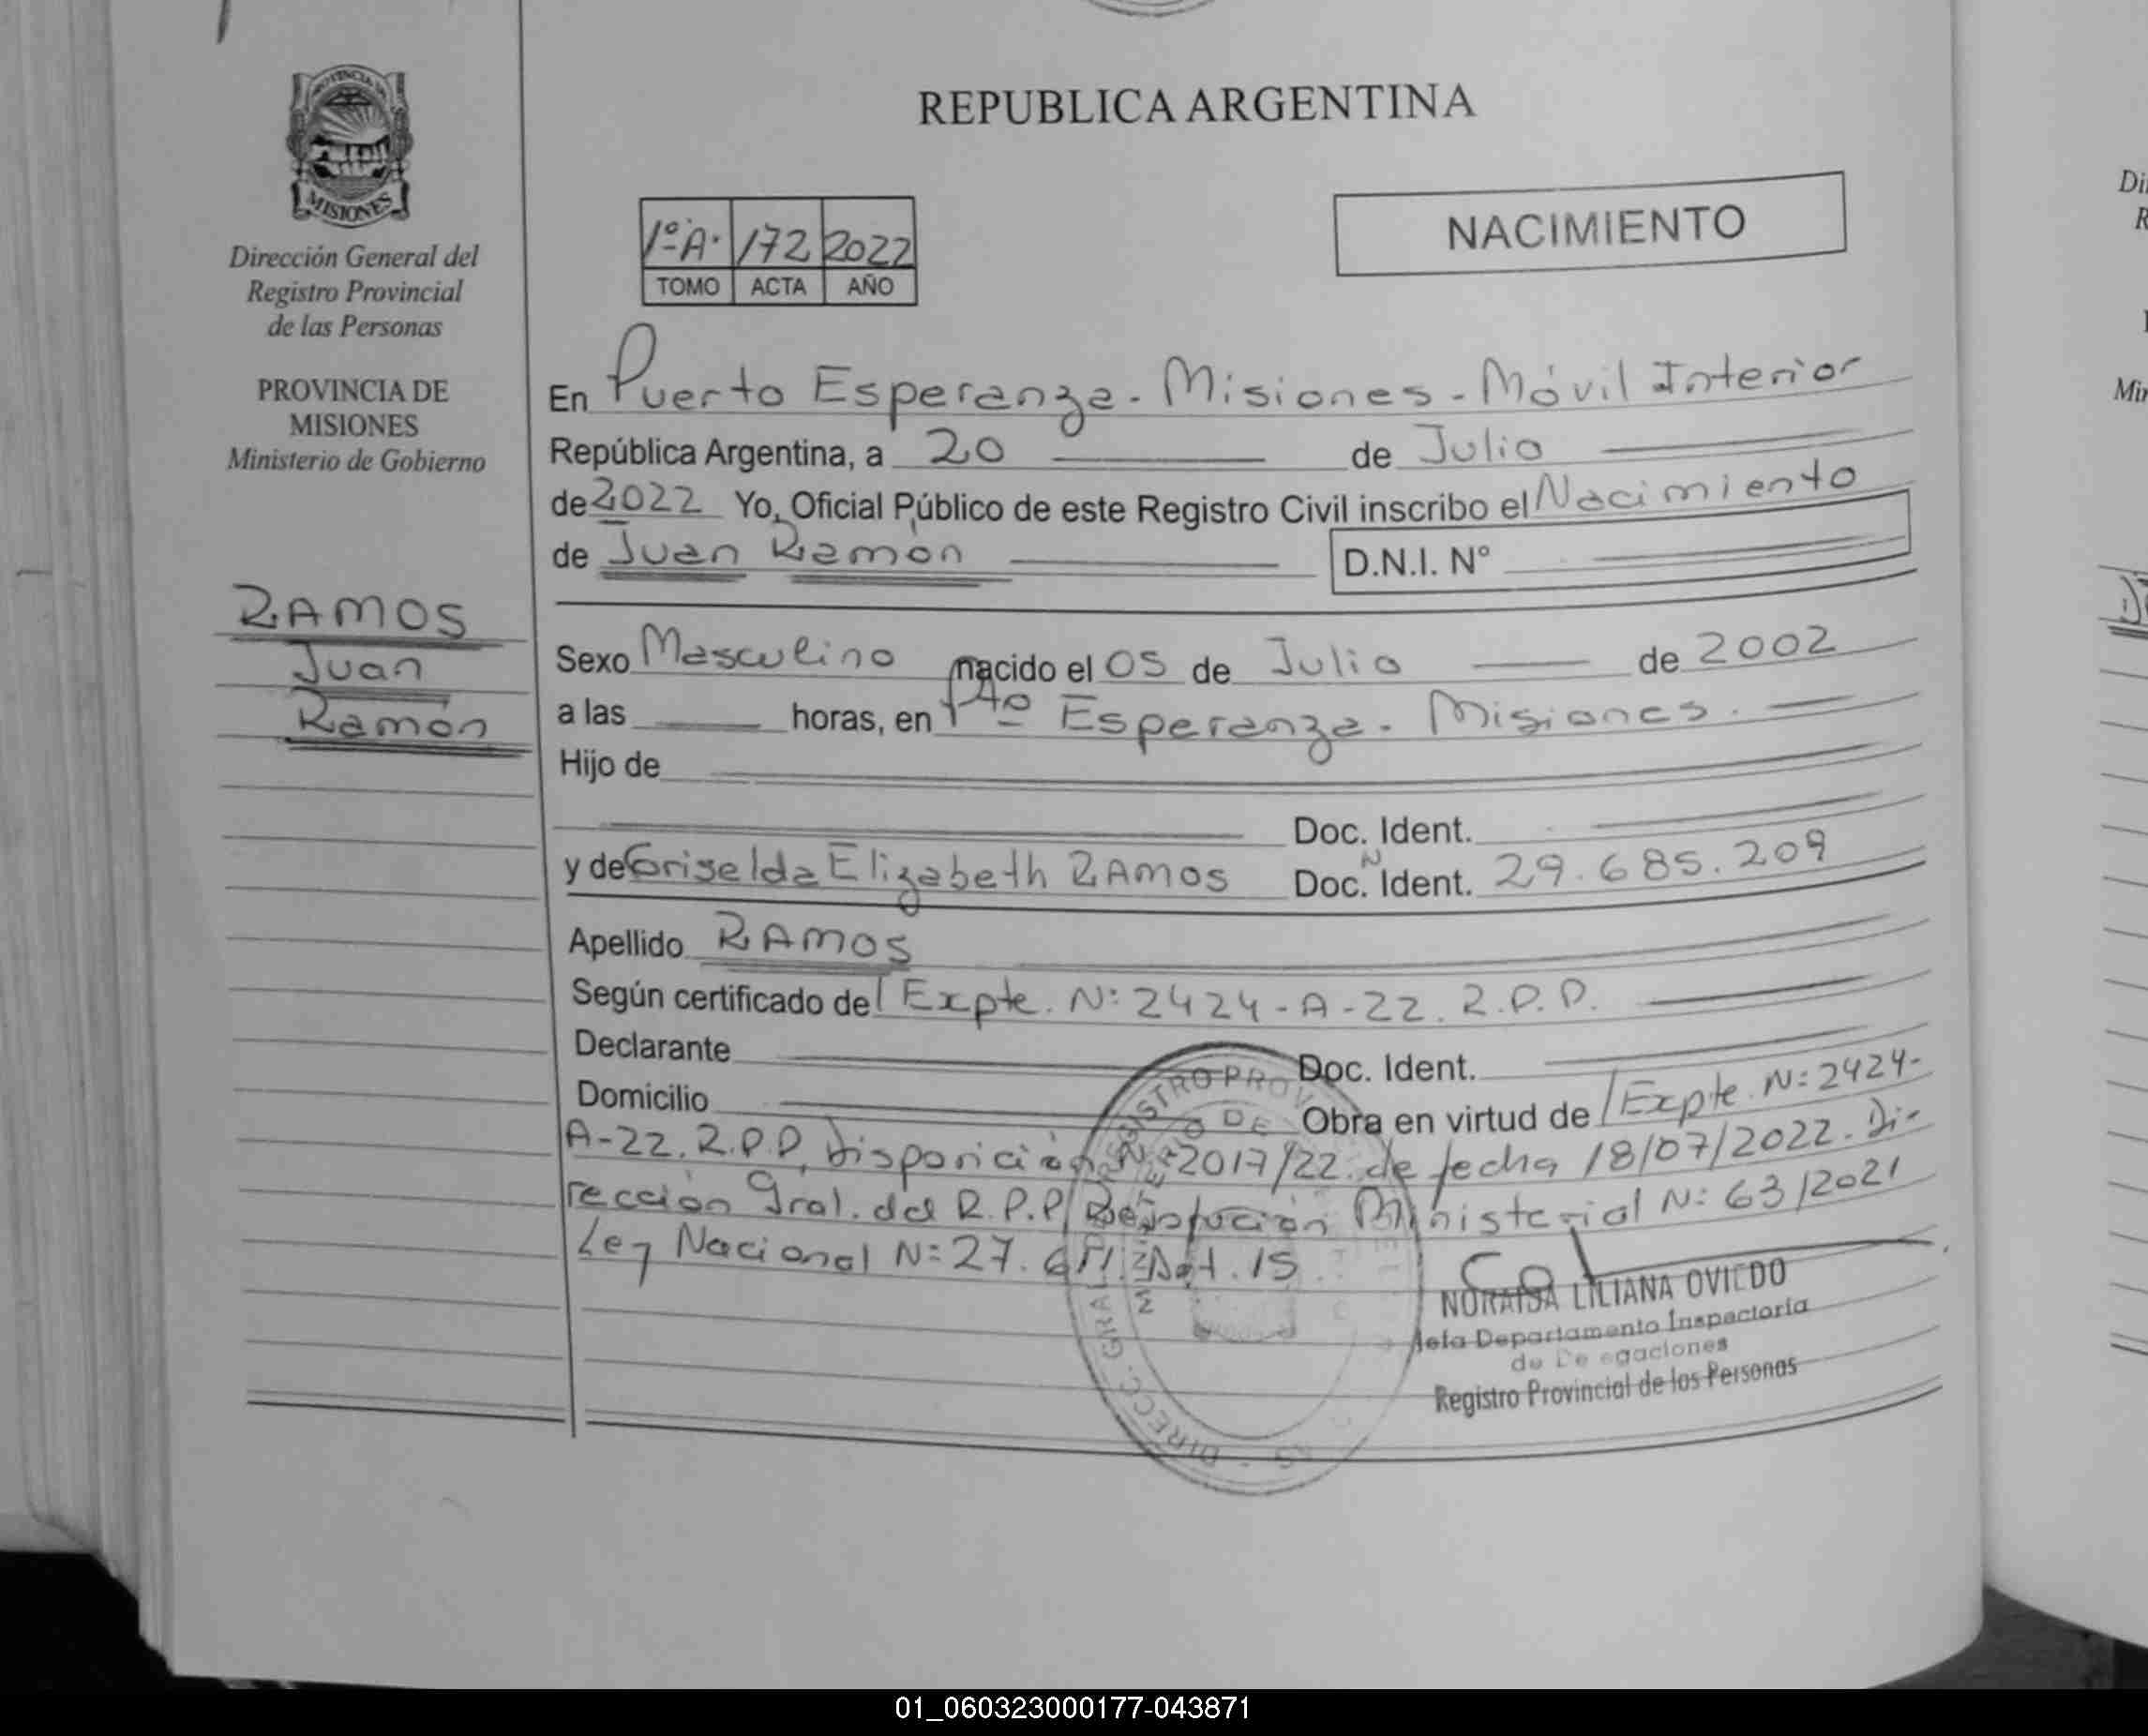 REPUBLICA ARGENTINA
PROVINCIA
MISIONES
Dirección General del
Registro Provincial
de las Personas
PROVINCIA DE
MISIONES
Ministerio de Gobierno
RAMOS
Juan
Ramon
1º A. 172 2022
TOMO ACTA AÑO
NACIMIENTO
En Puerto Esperanza - Misiones - Móvil Interior
República Argentina, a 20 de Julio
de 2022 Yo, Oficial Público de este Registro Civil inscribo el Nacimiento
de Juan Ramón D.N.I. Nº
Sexo Masculino nacido el 05 de Julio de 2002
a las horas, en Pto Esperanza - Misiones.
Hijo de
Doc. Ident.
y de Griselda Elizabeth RAMOS Doc. N Ident. 29.685.209
Apellido RAMOS
Según certificado del Expte. N: 2424 - A - 22. R.P.P.
Declarante Doc. Ident.
Domicilio Obra en virtud de / Expte. N: 2424-
A-22. R.P.P, Disposición N: 2017/22 de fecha 18/07/2022. Di-
rección Gral. del R.P.P, Resolución Ministerial N: 63/2021
Ley Nacional N: 27.611. Art. 15
NORAISA LILIANA OVIEDO
Jefa Departamento Inspectoria
de Delegaciones
Registro Provincial de las Personas
DIRECC. GRAL. REGISTRO PROV
MINISTERIO DE
Di
R
Min
01_060323000177-043871